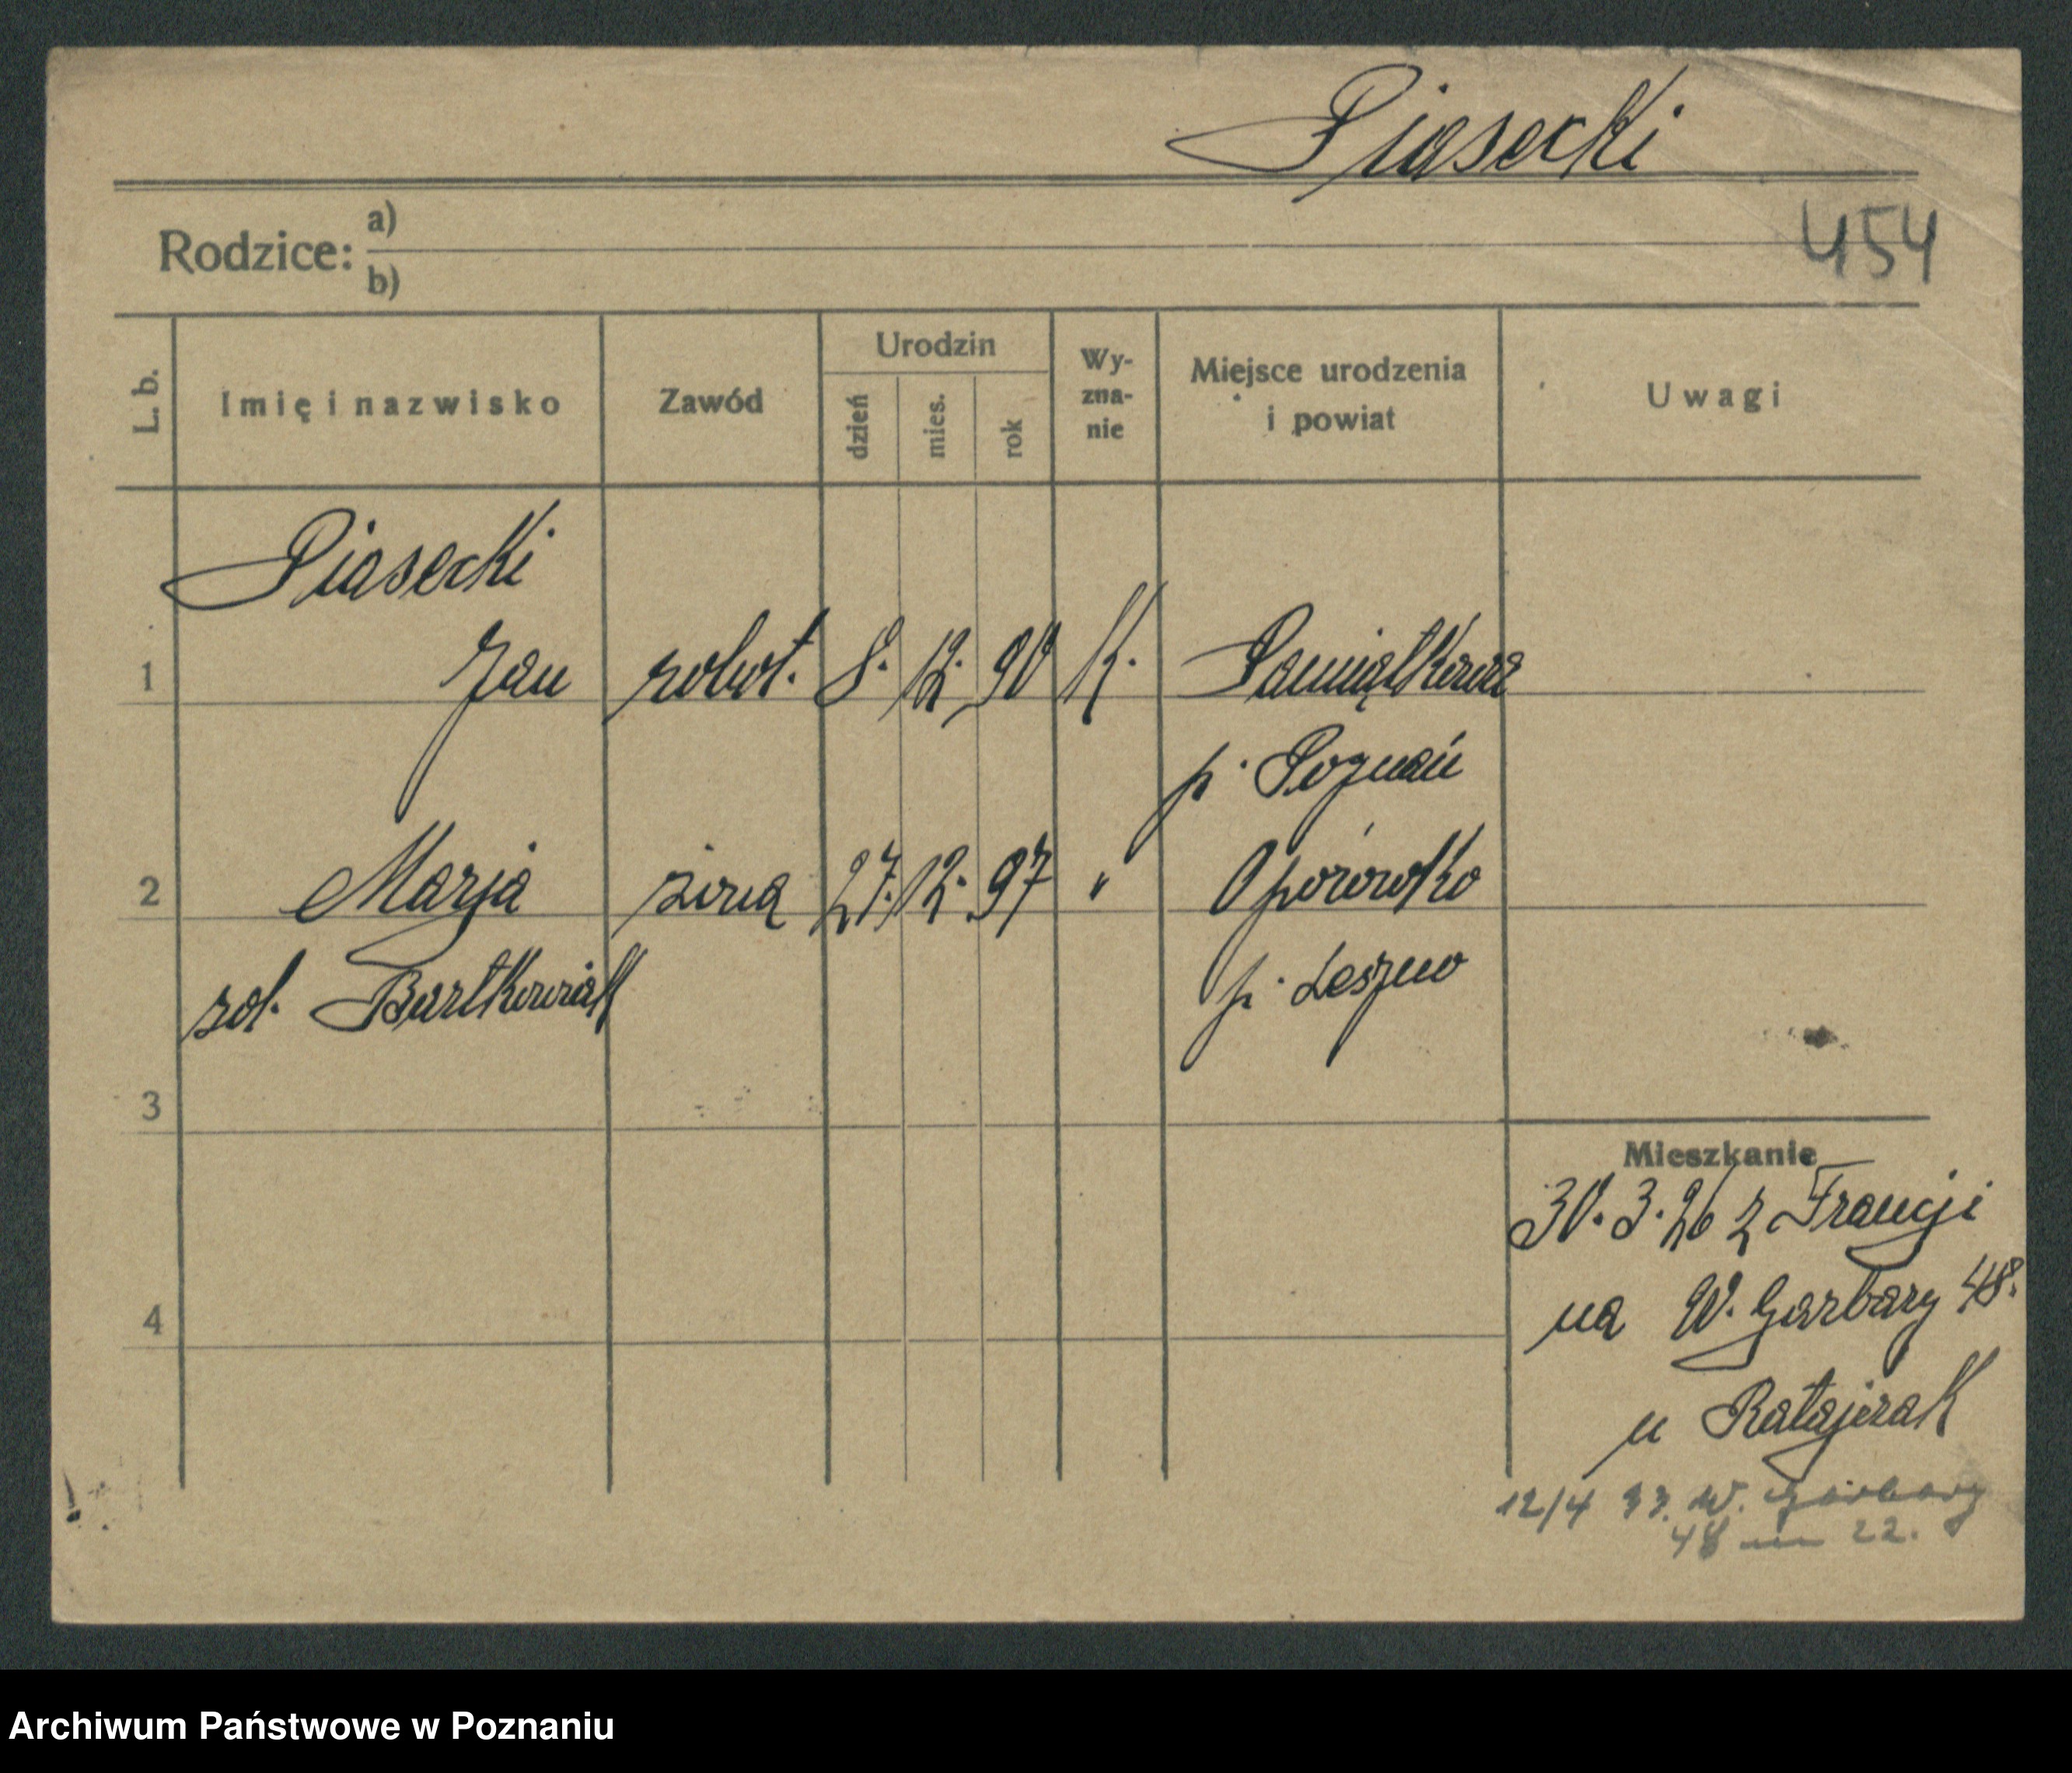 Piasecki
454
Rodzice: a)
b)
L. b.
Imię i nazwisko
Zawód
Urodzin
dzień
mies.
rok
Wy-
zna-
nie
Miejsce urodzenia
i powiat
Uwagi
Piasecki
1 Jan robot. 8. 12. 90 K. Pamiątkowo
p. Poznań
2 Marja żona 27. 12. 97 " Oporówko
zol. Bartkowiak p. Leszno
3
Mieszkanie
30. 3. 26 z Francji
na W. Garbary 48.
4
u Ratajczak
12/4 33. W. Garbary
48 m 22.
Archiwum Państwowe w Poznaniu